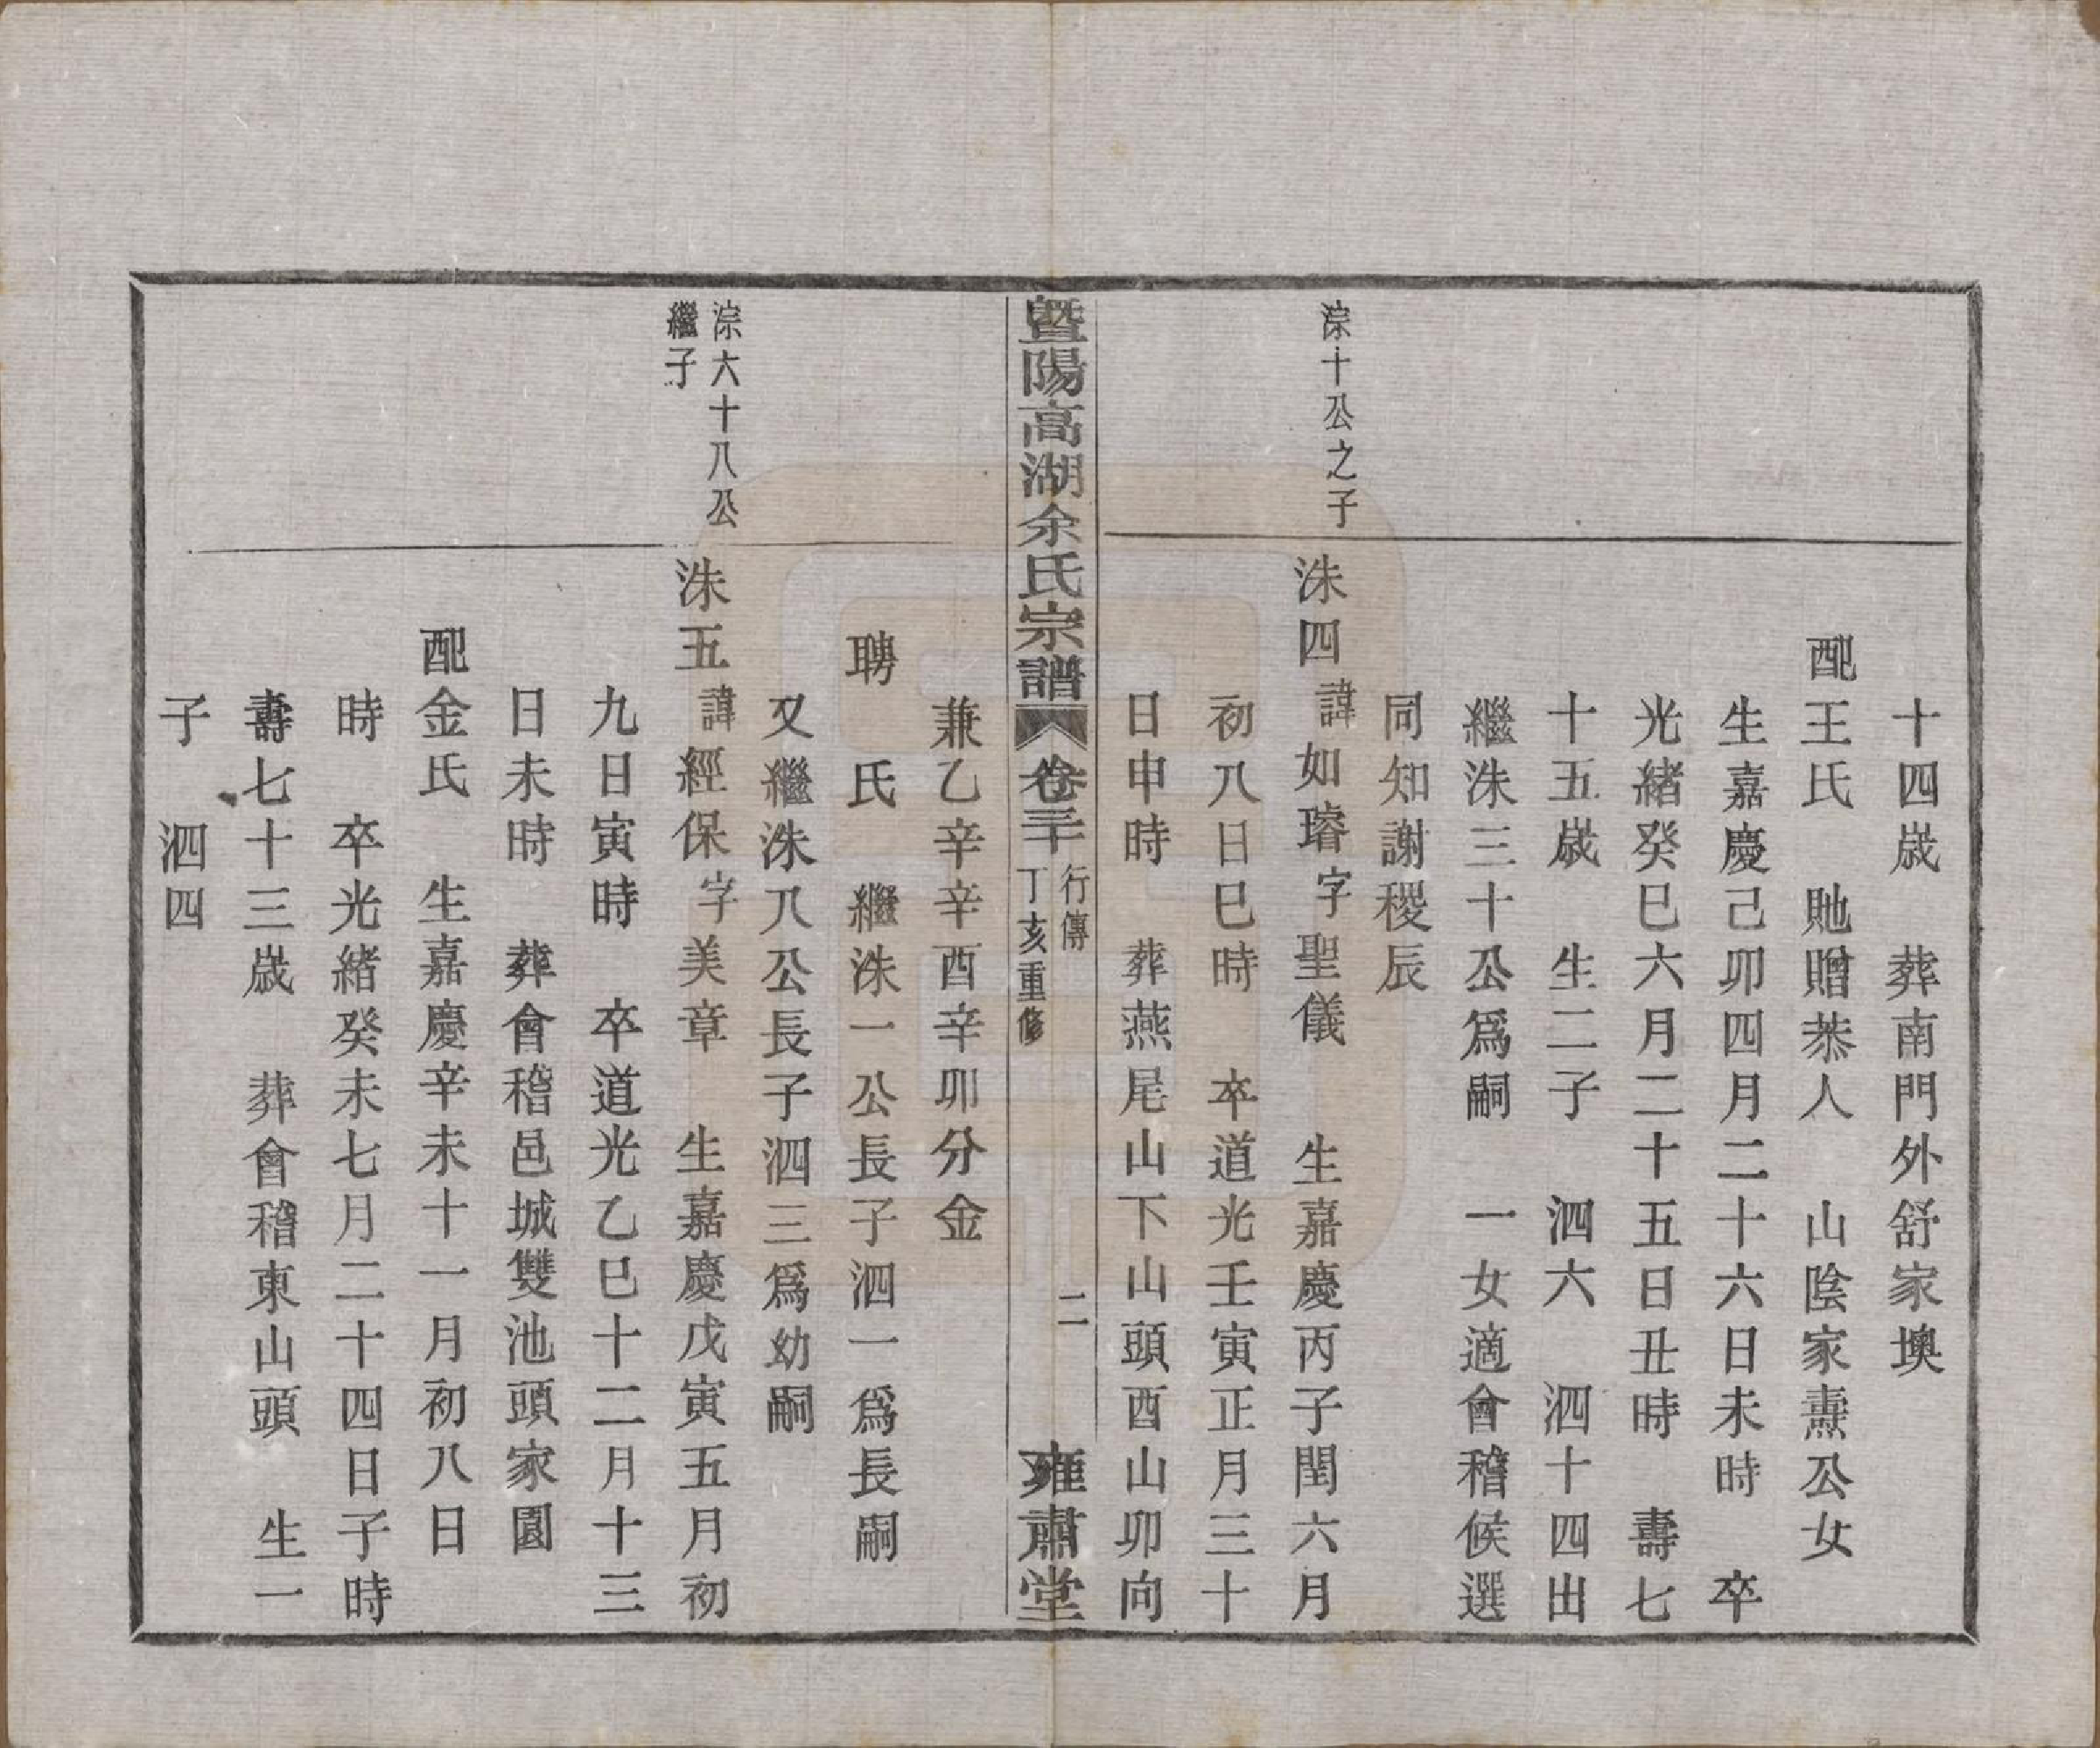 十四歲　葬南門外舒家墺
配王氏　貤贈恭人　山陰家燾公女
生嘉慶己卯四月二十六日未時　卒
光緒癸巳六月二十五日丑時　壽七
十五歲　生二子　泗六　泗十四出
繼洙三十公為嗣　一女適會稽候選
同知謝稷辰
淙十公之子
洙四諱如璿字聖儀　生嘉慶丙子閏六月
初八日巳時　卒道光壬寅正月三十
日申時　葬燕尾山下山頭酉山卯向
暨陽高湖余氏宗譜　卷三十　行傳　丁亥重修　二　雍肅堂
兼乙辛辛酉辛卯分金
聘　氏　繼洙一公長子泗一為長嗣
又繼洙八公長子泗三為幼嗣
淙六十八公
繼子
洙五諱經保字美章　生嘉慶戊寅五月初
九日寅時　卒道光乙巳十二月十三
日未時　葬會稽邑城雙池頭家園
配金氏　生嘉慶辛未十一月初八日
時　卒光緒癸未七月二十四日子時
壽七十三歲　葬會稽東山頭　生一
子　泗四